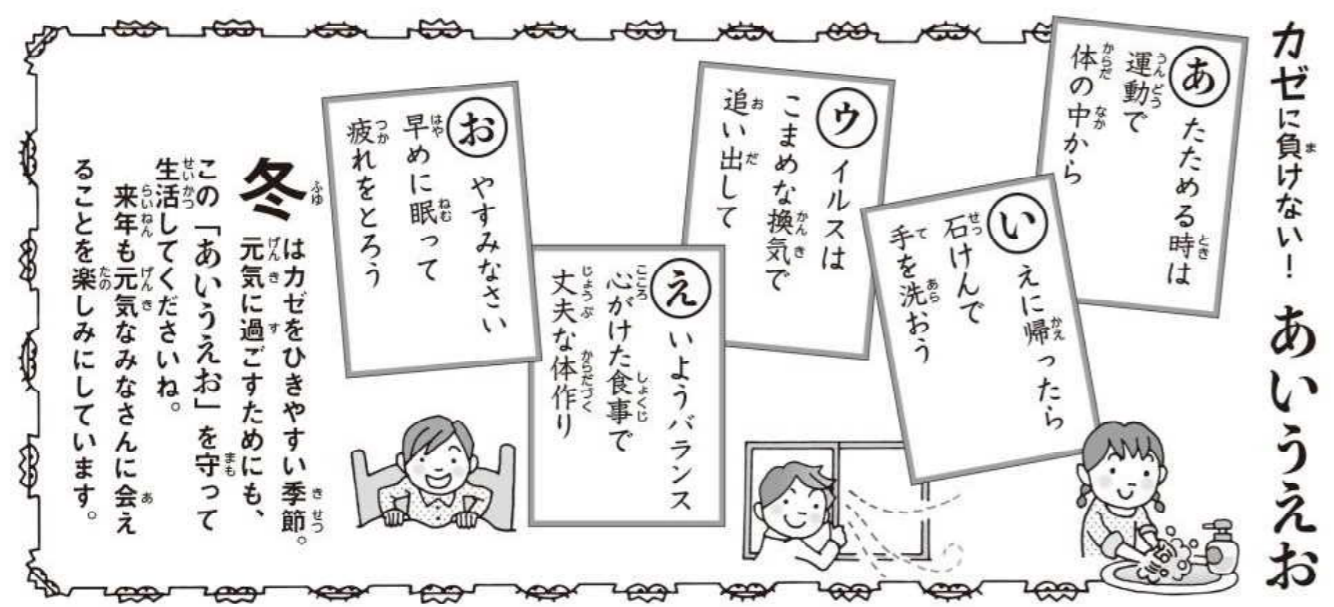 カゼに負けない！ あいうえお
あたためる時は
運動で
体の中から
いえに帰ったら
石けんで
手を洗おう
ウイルスは
こまめな換気で
追い出して
えいようバランス
心がけた食事で
丈夫な体作り
おやすみなさい
早めに眠って
疲れをとろう
冬はカゼをひきやすい季節。
元気に過ごすためにも、
この「あいうえお」を守って
生活してくださいね。
来年も元気なみなさんに会え
ることを楽しみにしています。